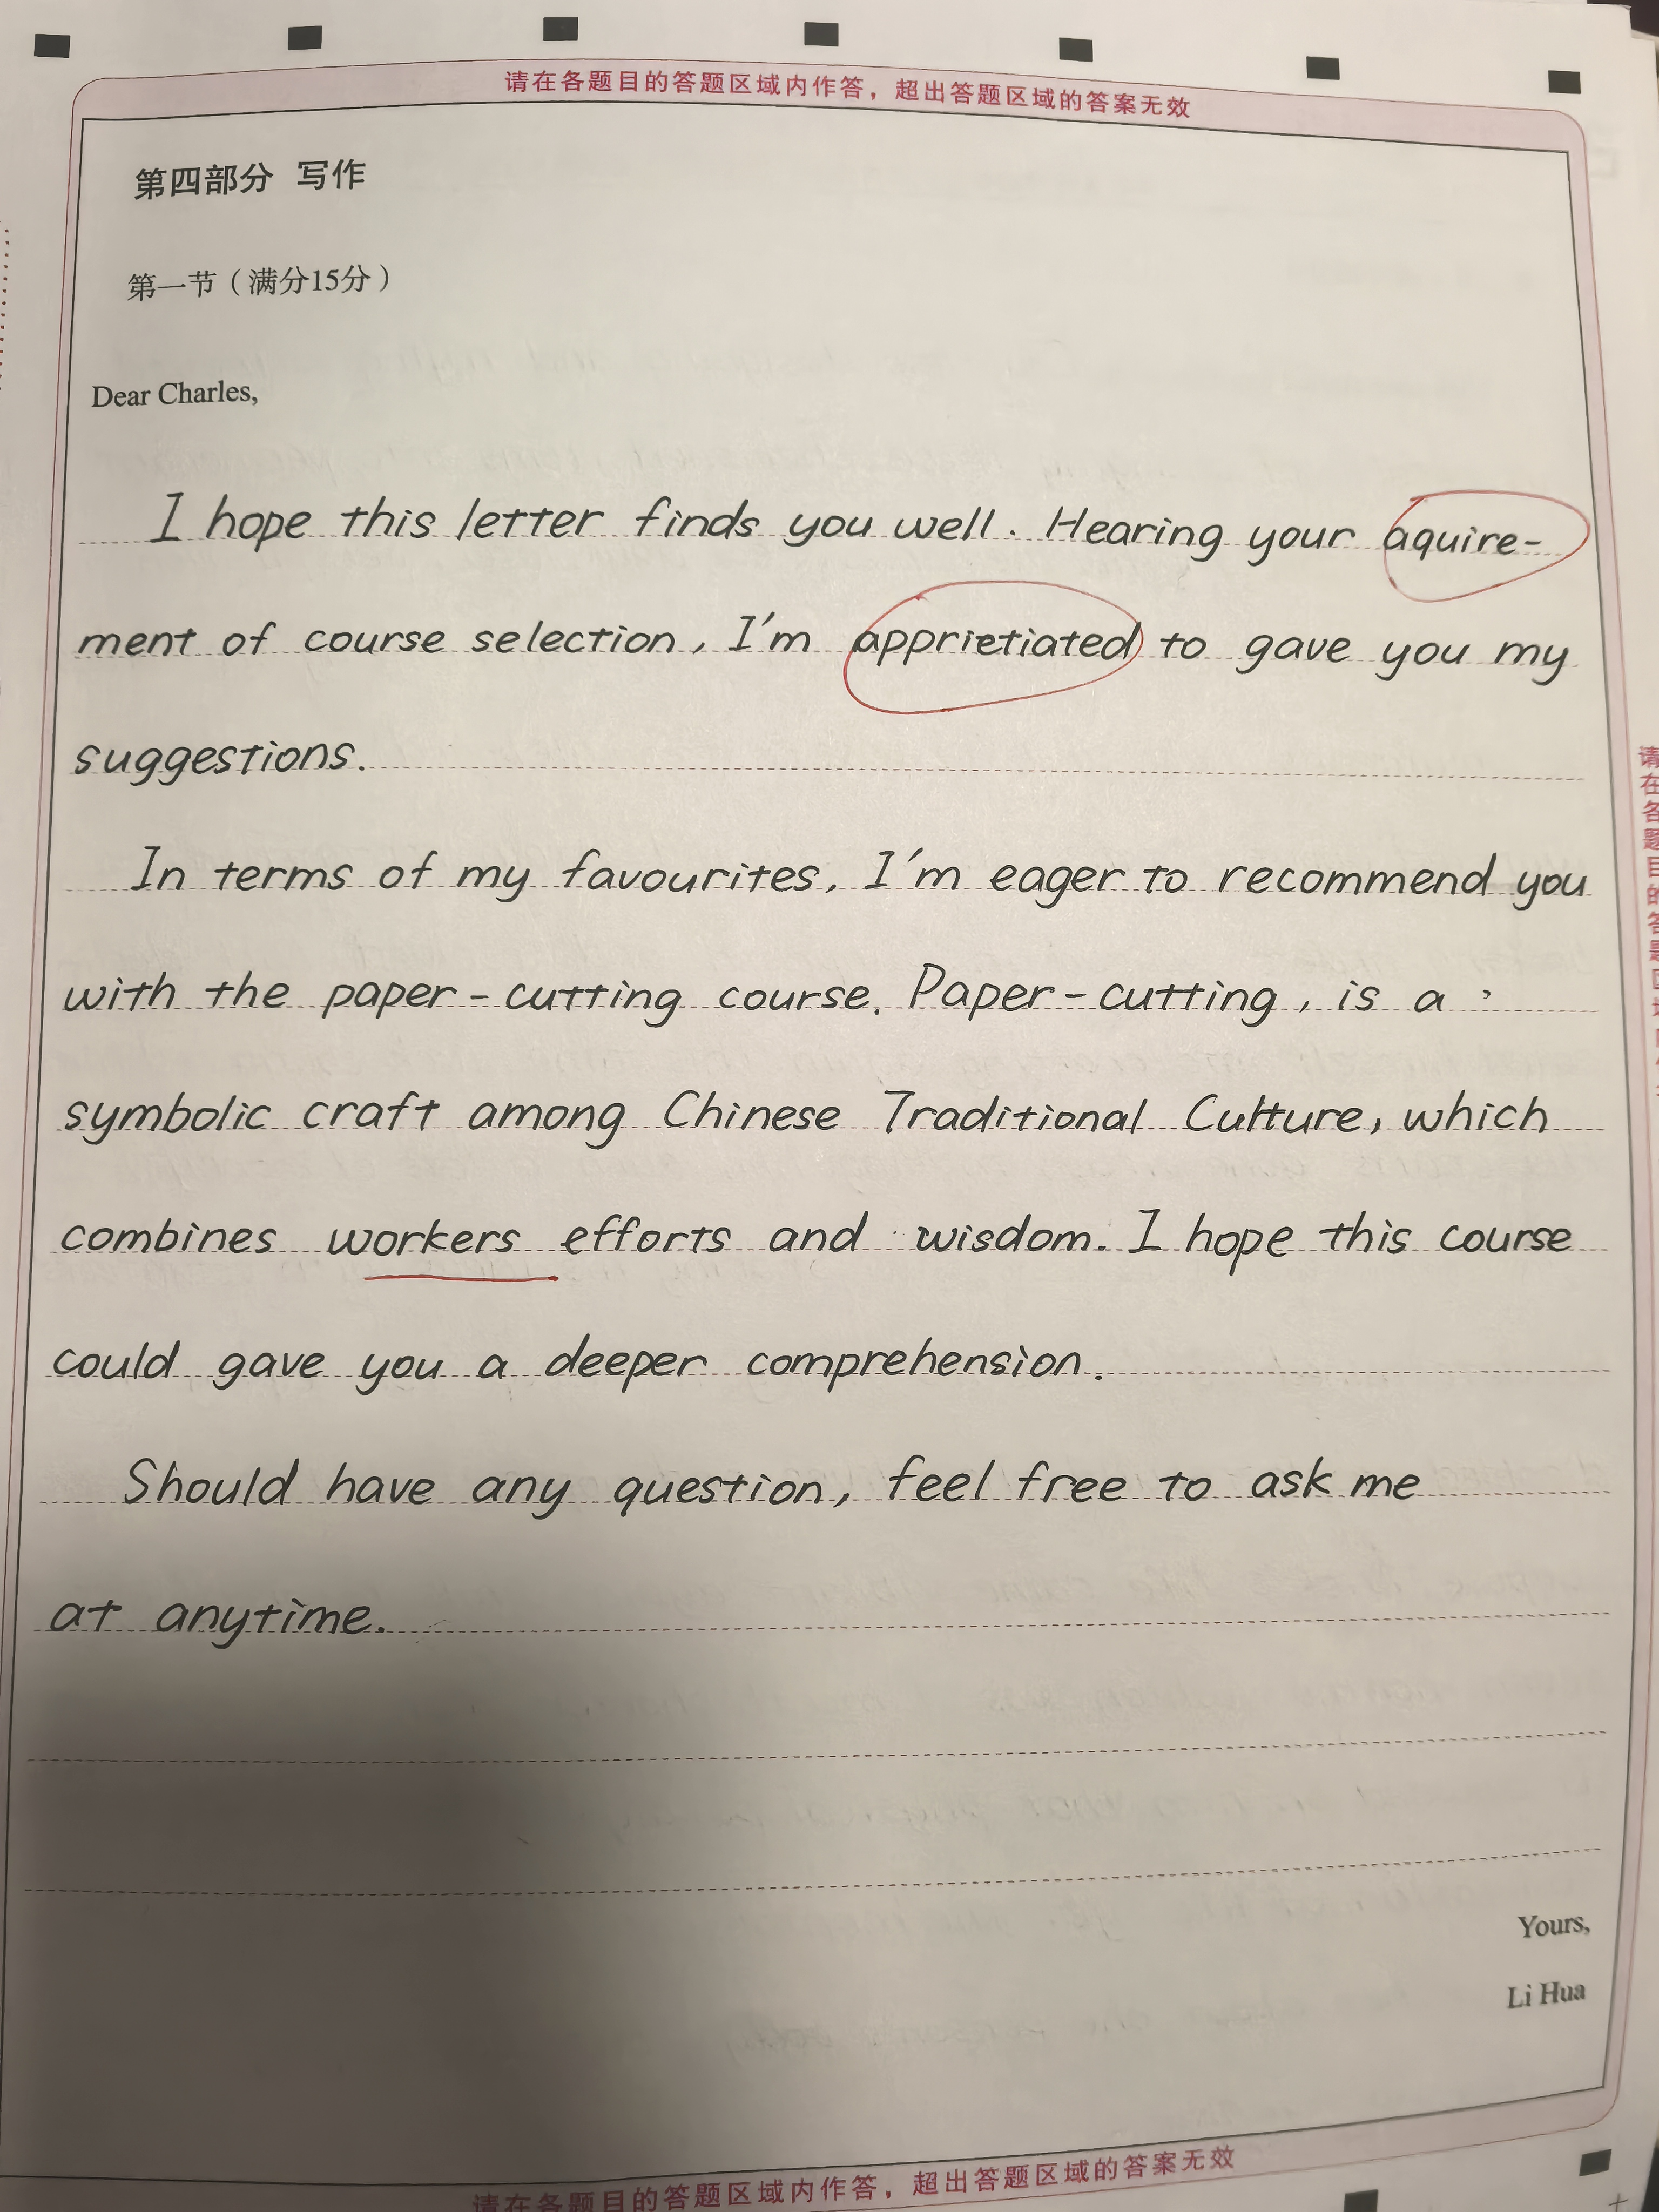 请在各题目的答题区域内作答，超出答题区域的答案无效
第四部分 写作
第一节（满分15分）
Dear Charles,
I hope this letter finds you well. Hearing your aquire-
ment of course selection, I'm apprietiated to gave you my
suggestions.
In terms of my favourites, I'm eager to recommend you
with the paper-cutting course. Paper-cutting, is a
symbolic craft among Chinese Traditional Culture, which
combines workers efforts and wisdom. I hope this course
could gave you a deeper comprehension.
Should have any question, feel free to ask me
at anytime.
Yours,
Li Hua
请在各题目的答题区域内作答，超出答题区域的答案无效
请在各题目的答